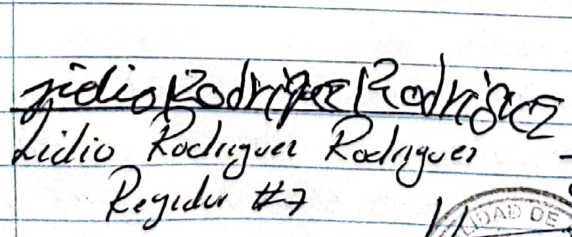 Lidio Rodriguez Rodriguez
Lidio Rodriguez Rodriguez
Regidor #7
DAD DE